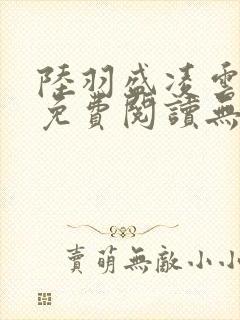 陸羽盛凌雲
免費閱讀無
賣萌無敵小小